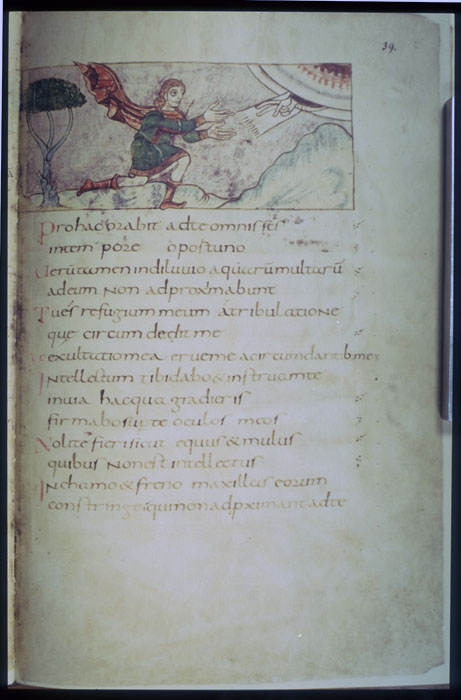 39.
Prohac orabit adte omnis scs
intempore opostuno
Verutamen indiluvio aquarū multarū
adeum non adproximabunt
Tu es refugium meum atribulatione
que circumdedit me
exultatio mea erue me acircumdantib: me
Intellectum tibi dabo & instruam te
inuia hac qua gradieris
firmabo supte oculos meos
Nolite fieri sicut equus & mulus
quibus non est intellectus
Inchamo & freno maxillas eorum
constringe qui non adpximant adte